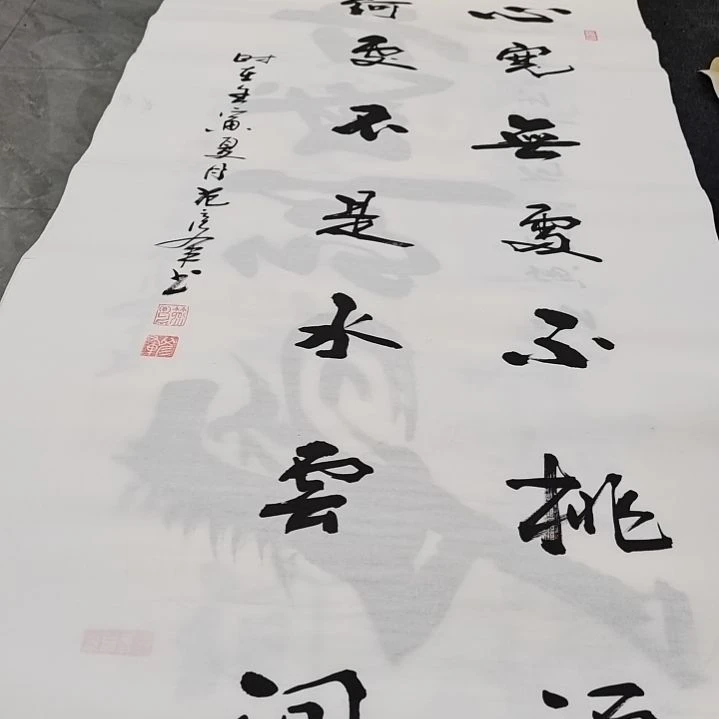 心寬無處不桃源
何處不是水雲間
时在壬寅夏月范
书